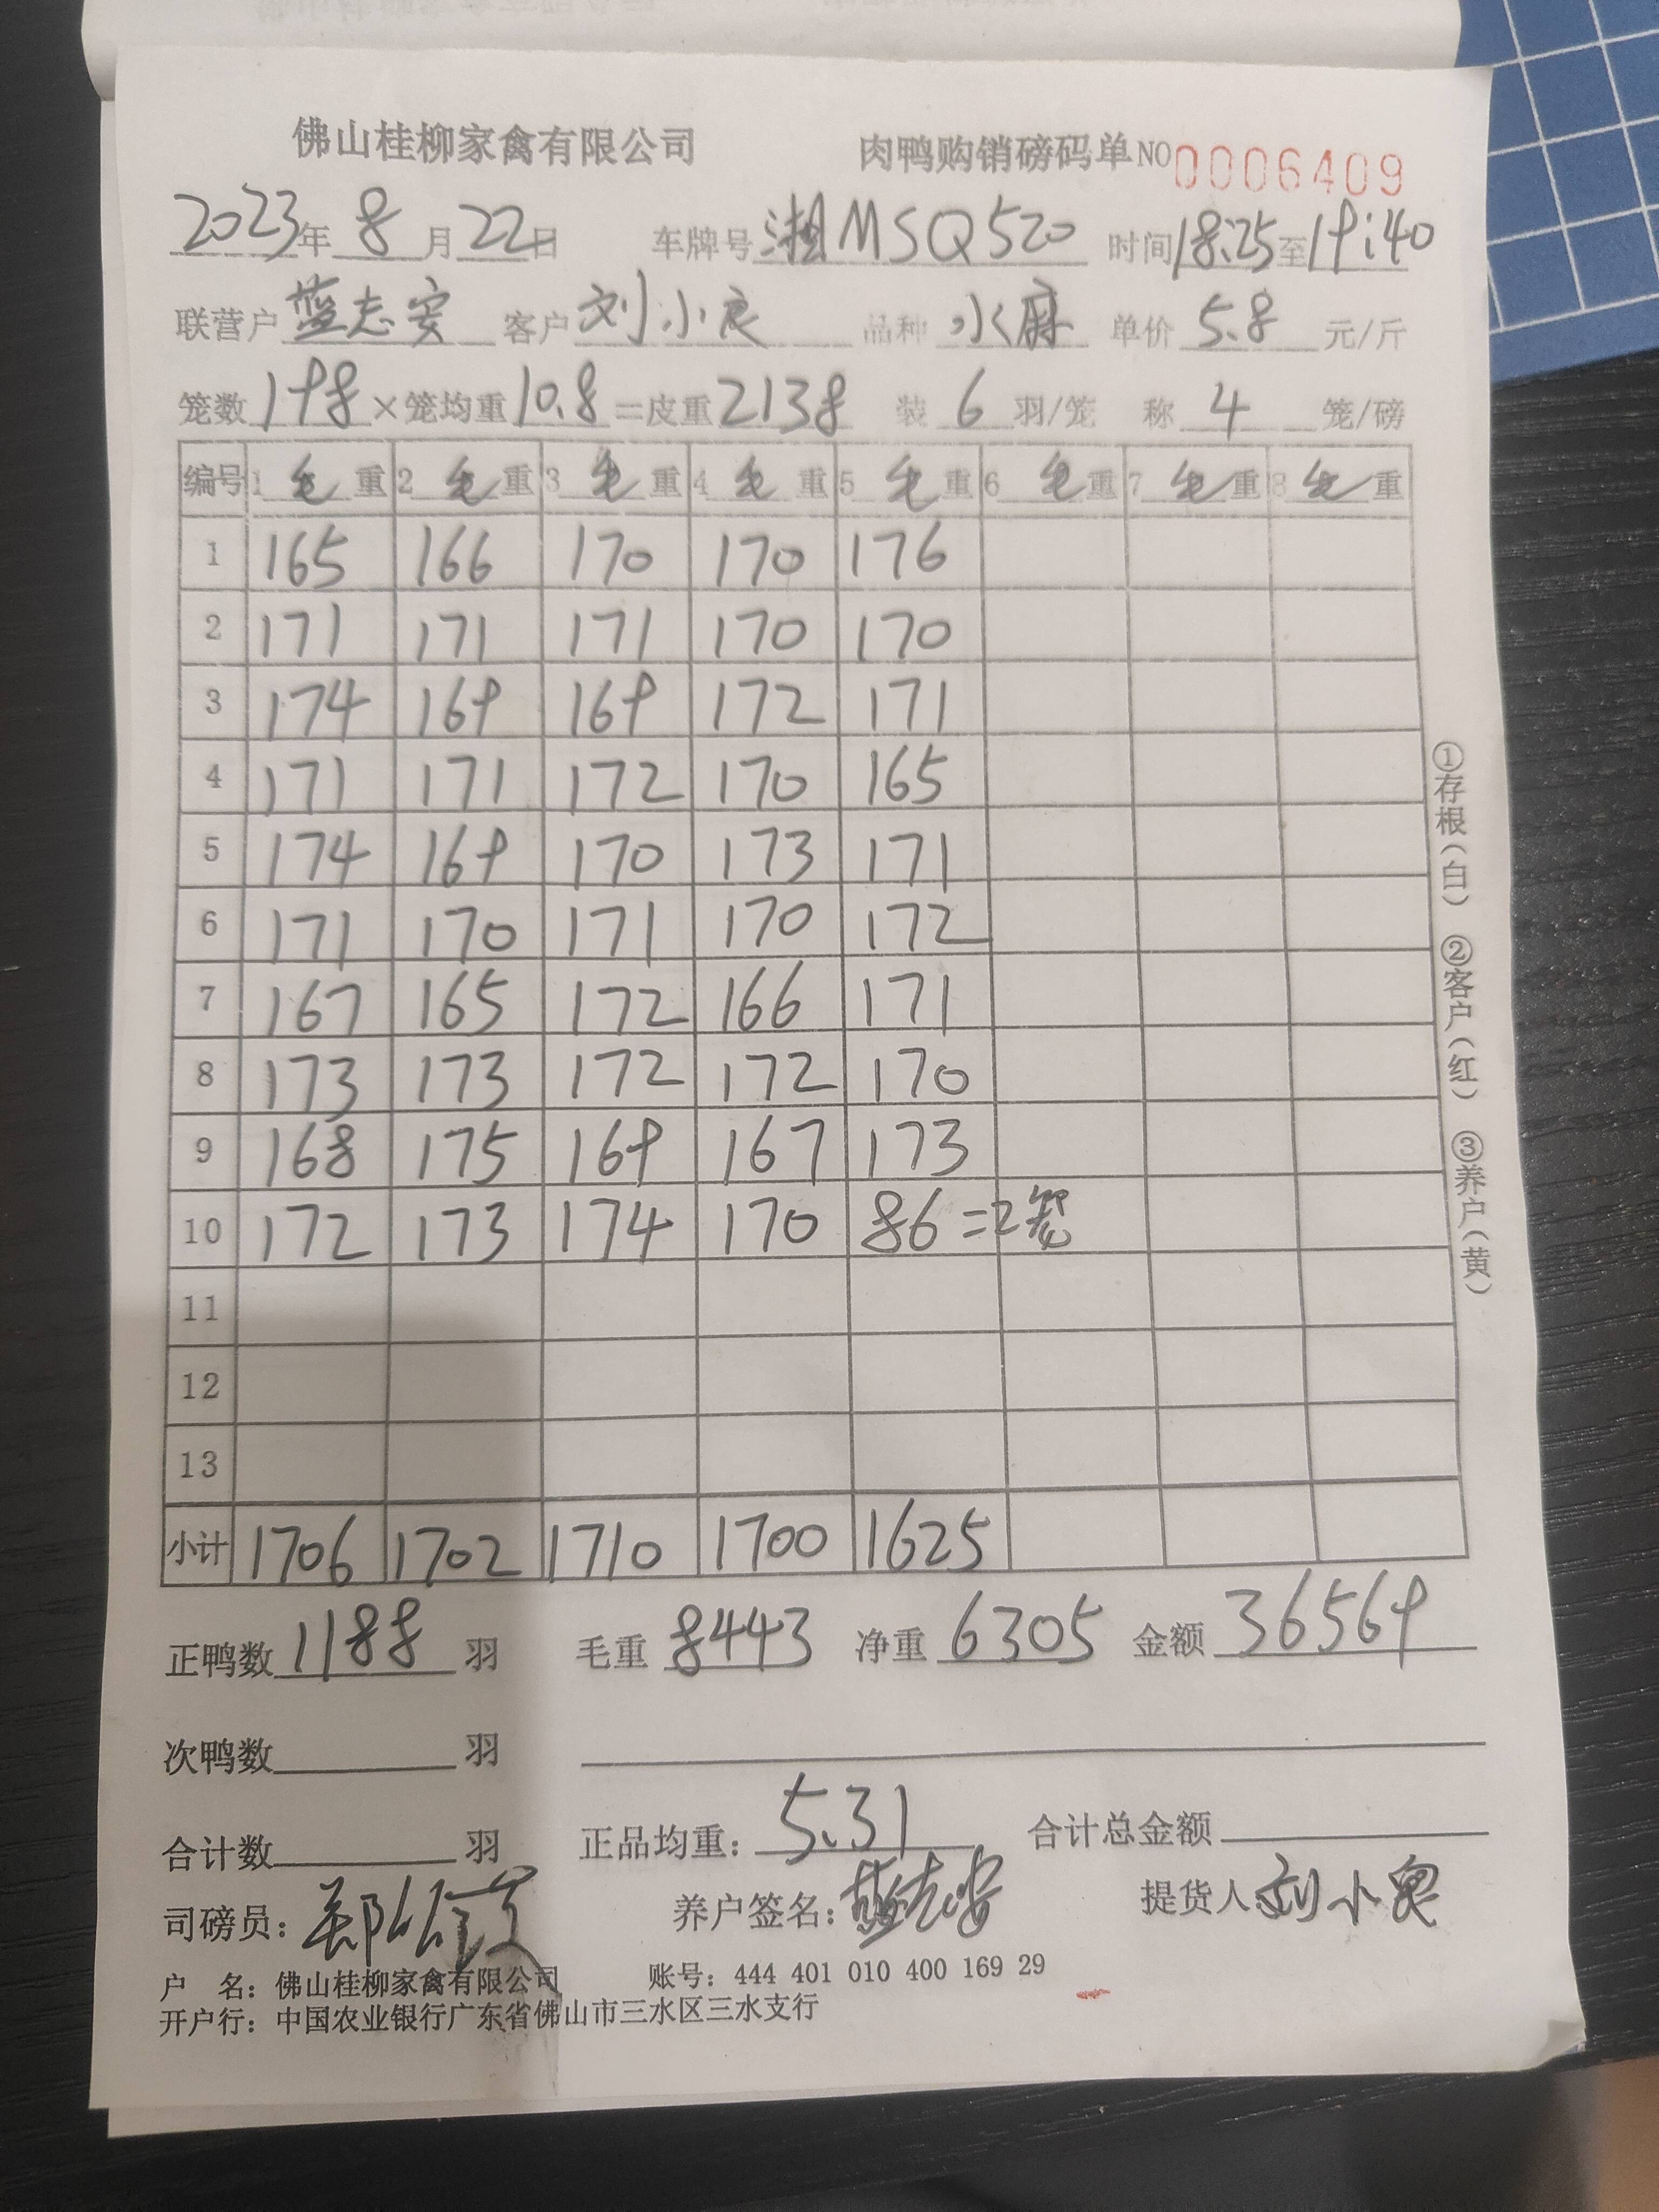 佛山桂柳家禽有限公司 肉鸭购销磅码单 NO 0006409
2023年 8月22日 车牌号 湘MSQ520 时间18:25至19:40
联营户 蓝志安 客户 刘小良 品种 水麻 单价 5.8 元/斤
笼数 198 ×笼均重 10.8 =皮重 2138 装 6 羽/笼 称 4 笼/磅
编号 1 毛重 2 毛重 3 毛重 4 毛重 5 毛重 6 毛重 7 毛重 8 毛重
1 165 166 170 170 176
2 171 171 171 170 170
3 174 169 169 172 171
4 171 171 172 170 165
5 174 169 170 173 171
6 171 170 171 170 172
7 167 165 172 166 171
8 173 173 172 172 170
9 168 175 169 167 173
10 172 173 174 170 86=2笼
11
12
13
小计 1706 1702 1710 1700 1625
正鸭数 1188 羽 毛重 8443 净重 6305 金额 36569
次鸭数 羽
合计数 羽 正品均重: 5.31 合计总金额
司磅员: 郑 养户签名: 蓝志安 提货人 刘小良
户 名: 佛山桂柳家禽有限公司 账号: 444 401 010 400 169 29
开户行: 中国农业银行广东省佛山市三水区三水支行
①存根(白) ②客户(红) ③养户(黄)